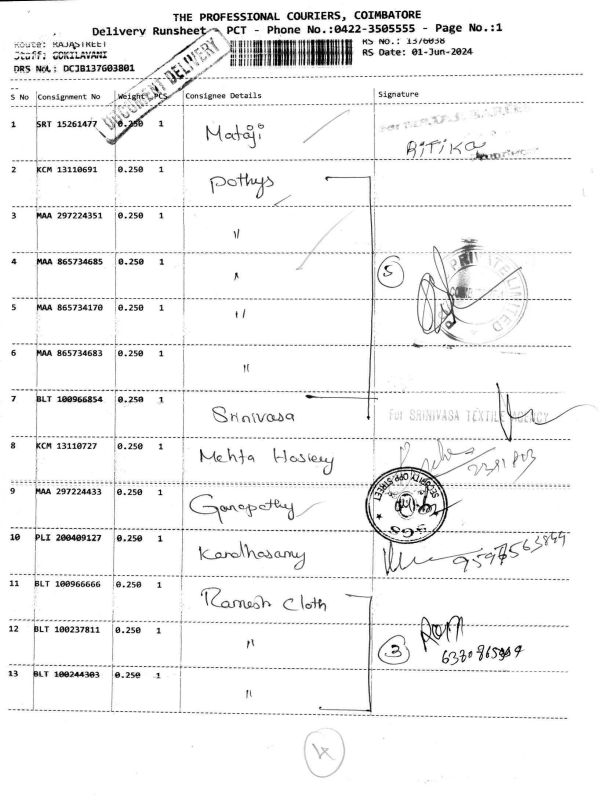 THE PROFESSIONAL COURIERS, COIMBATORE
Delivery Runsheet - PCT - Phone No.:0422-3505555 - Page No.:1
Route: RAJASTREET
RS No.: 1376038
Staff: GOKILAVANI
RS Date: 01-Jun-2024
DRS No.: DCJB137603801
DOCUMENT DELIVERY
S No Consignment No Weight PCS Consignee Details Signature
1 SRT 15261477 0.250 1 Mataji RITIKA
2 KCM 13110691 0.250 1 Pothys
3 MAA 297224351 0.250 1 "
4 MAA 865734685 0.250 1 " 5
PRIVATE LIMITED
5 MAA 865734170 0.250 1 "
6 MAA 865734683 0.250 1 "
7 BLT 100966854 0.250 1 Srinivasa For SRINIVASA TEXTILE AGENCY
8 KCM 13110727 0.250 1 Mehta Hosiery 2381803
9 MAA 297224433 0.250 1 Ganapathy
10 PLI 200409127 0.250 1 Kandhasamy
11 BLT 100966666 0.250 1 Ramesh Cloth
12 BLT 100237811 0.250 1 " 3
13 BLT 100244303 0.250 1 "